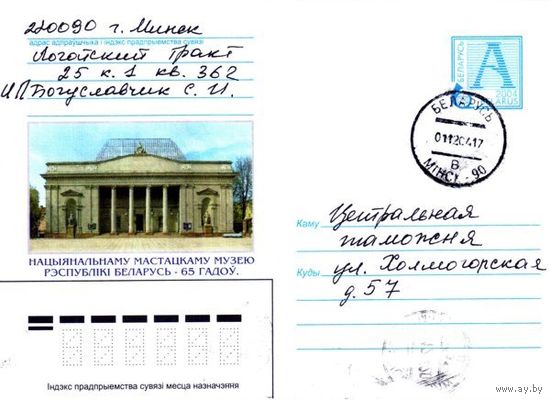 220090 г. Минск
адрас адпраўшчыка і індэкс прадпрыемства сувязі
Логойский Тракт
25 к. 1 кв. 362
ИП Богуславчик С. И.
НАЦЫЯНАЛЬНАМУ МАСТАЦКАМУ МУЗЕЮ
РЭСПУБЛІКІ БЕЛАРУСЬ - 65 ГАДОЎ.
Індэкс прадпрыемства сувязі месца назначэння
БЕЛАРУСЬ
А
2004
BELARUS
БЕЛАРУСЬ
01120417
В
МІНСК - 90
Каму Центральная
таможня
Куды ул. Холмогорская
д. 57
www.ay.by